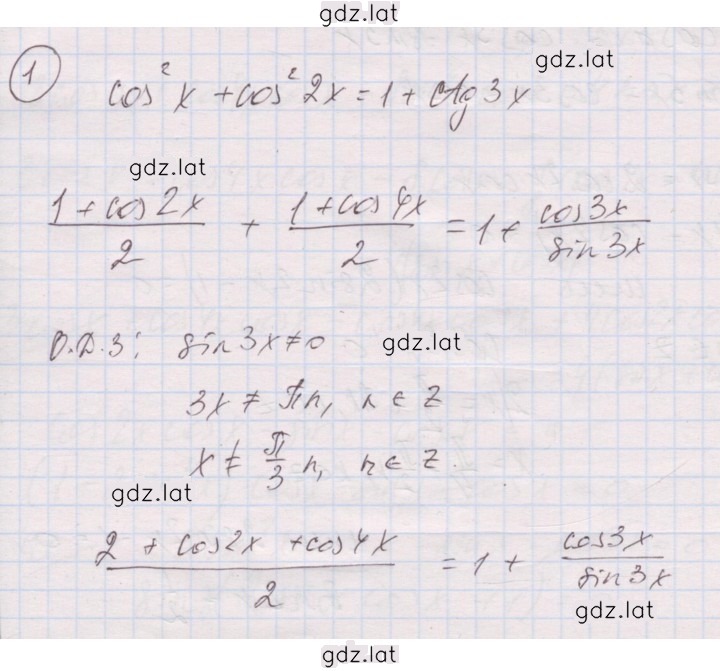 gdz.lat
① cos²x + cos²2x = 1 + ctg3x
gdz.lat
gdz.lat
(1 + cos2x)/2 + (1 + cos4x)/2 = 1 + cos3x/sin3x
О.Д.З: sin3x ≠ 0
gdz.lat
3x ≠ πn, n ∈ Z
x ≠ π/3 n, n ∈ Z
gdz.lat
(2 + cos2x + cos4x)/2 = 1 + cos3x/sin3x
gdz.lat
gdz.lat